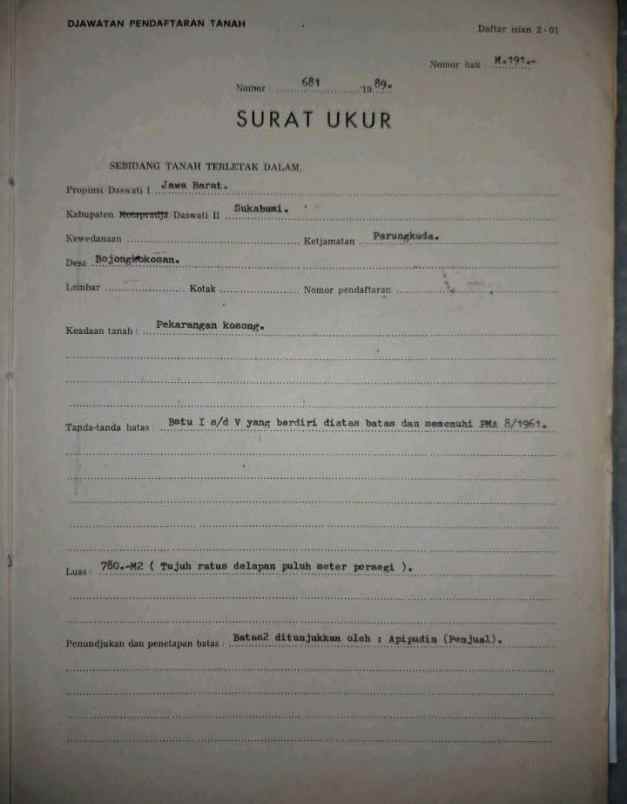 DJAWATAN PENDAFTARAN TANAH
Daftar isian 2 - 01
Nomor hak : M.191.-
Nomor : 681 1989.
SURAT UKUR
SEBIDANG TANAH TERLETAK DALAM.
Propinsi Daswati I Jawa Barat.
Kabupaten Kotapradja Daswati II Sukabumi.
Kewedanaan Ketjamatan Parungkuda.
Desa Bojongkokosan.
Lembar Kotak Nomor pendaftaran
Keadaan tanah : Pekarangan kosong.
Tanda-tanda batas : Batu I s/d V yang berdiri diatas batas dan memenuhi PMA 8/1961.
Luas : 780.-M2 ( Tujuh ratus delapan puluh meter persegi ).
Penundjukan dan penetapan batas : Batas2 ditunjukkan oleh : Apipudin (Penjual).